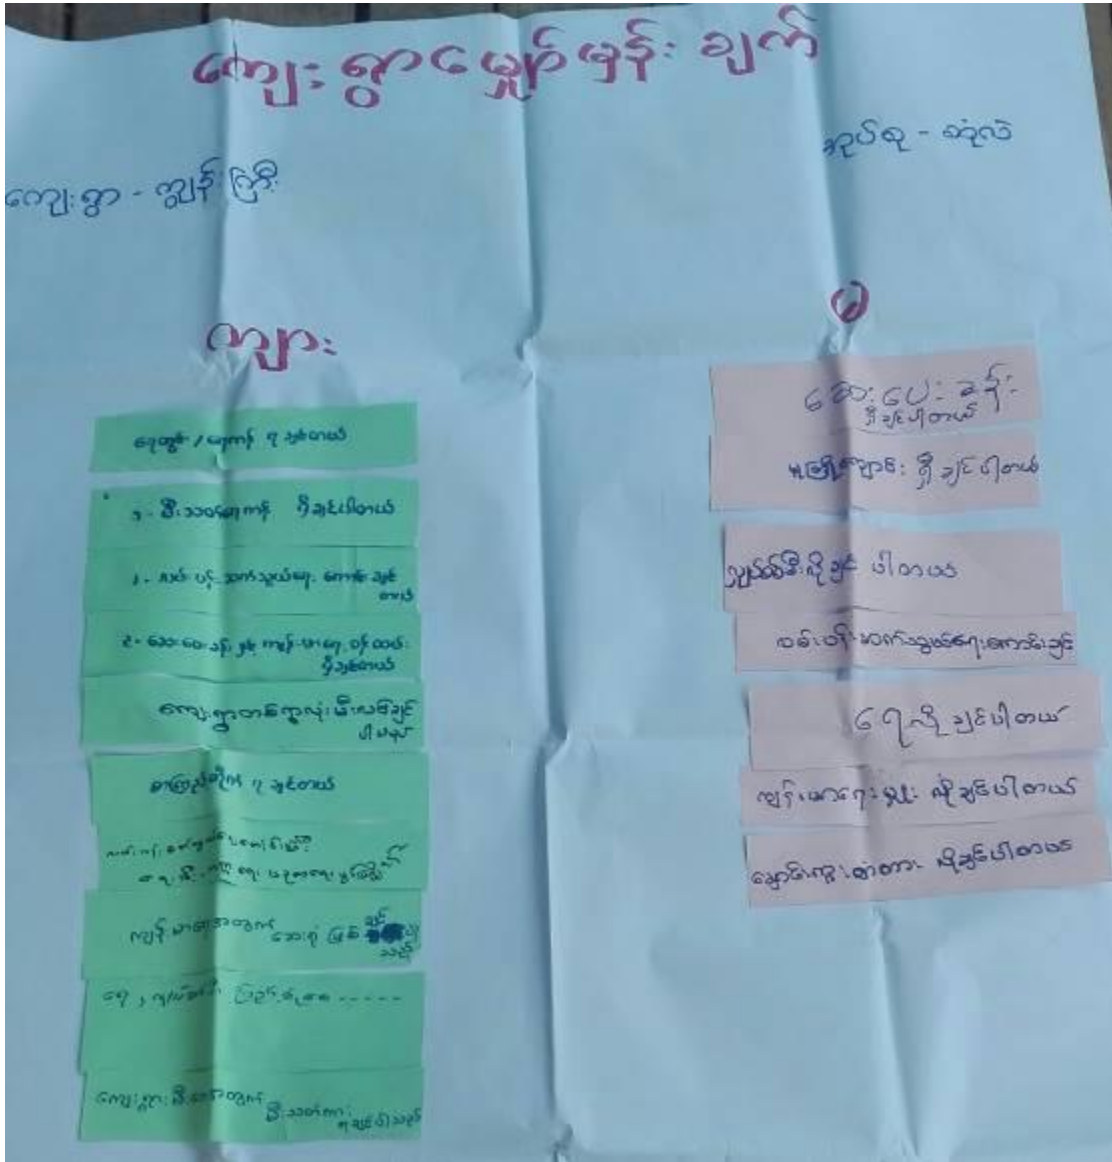 ကျေးရွာမျှော်မှန်းချက်
အုပ်စု - ဆုံလဲ
ကျေးရွာ - ကျွန်းကြီး
ကျား
မ
ရေတွင်း / ရေကန် ရချင်တယ်
၁- မီးသတ်ရေကန် ရှိချင်ပါတယ်
၂- လမ်းပန်းဆက်သွယ်ရေး ကောင်းချင်
တယ်
၃- ဆေးပေးခန်းနှင့် ကျန်းမာရေးဝန်ထမ်း
ရှိချင်တယ်
ကျေးရွာတစ်ရွာလုံး မီးလင်းချင်
ပါတယ်
စာကြည့်တိုက် ရချင်တယ်
လမ်းပန်းဆက်သွယ်ရေးကောင်း
ကျန်းမာရေးအတွက်
ဆေးရုံ ဖြစ်ချင်
သည်
ရေ, လျှပ်စစ်မီး
ကျေးရွာမီးဘေးအတွက်
မီးသတ်ကား
ရချင်ပါသည်
ဆေးပေးခန်း
ရှိချင်ပါတယ်
မူကြိုကျောင်း ရှိချင်ပါတယ်
လျှပ်စစ်မီးလိုချင်ပါတယ်
လမ်းပန်းဆက်သွယ်ရေးကောင်းချင်
ရေလိုချင်ပါတယ်
ကျန်းမာရေးမှူး လိုချင်ပါတယ်
ချောင်းကူးတံတား လိုချင်ပါတယ်